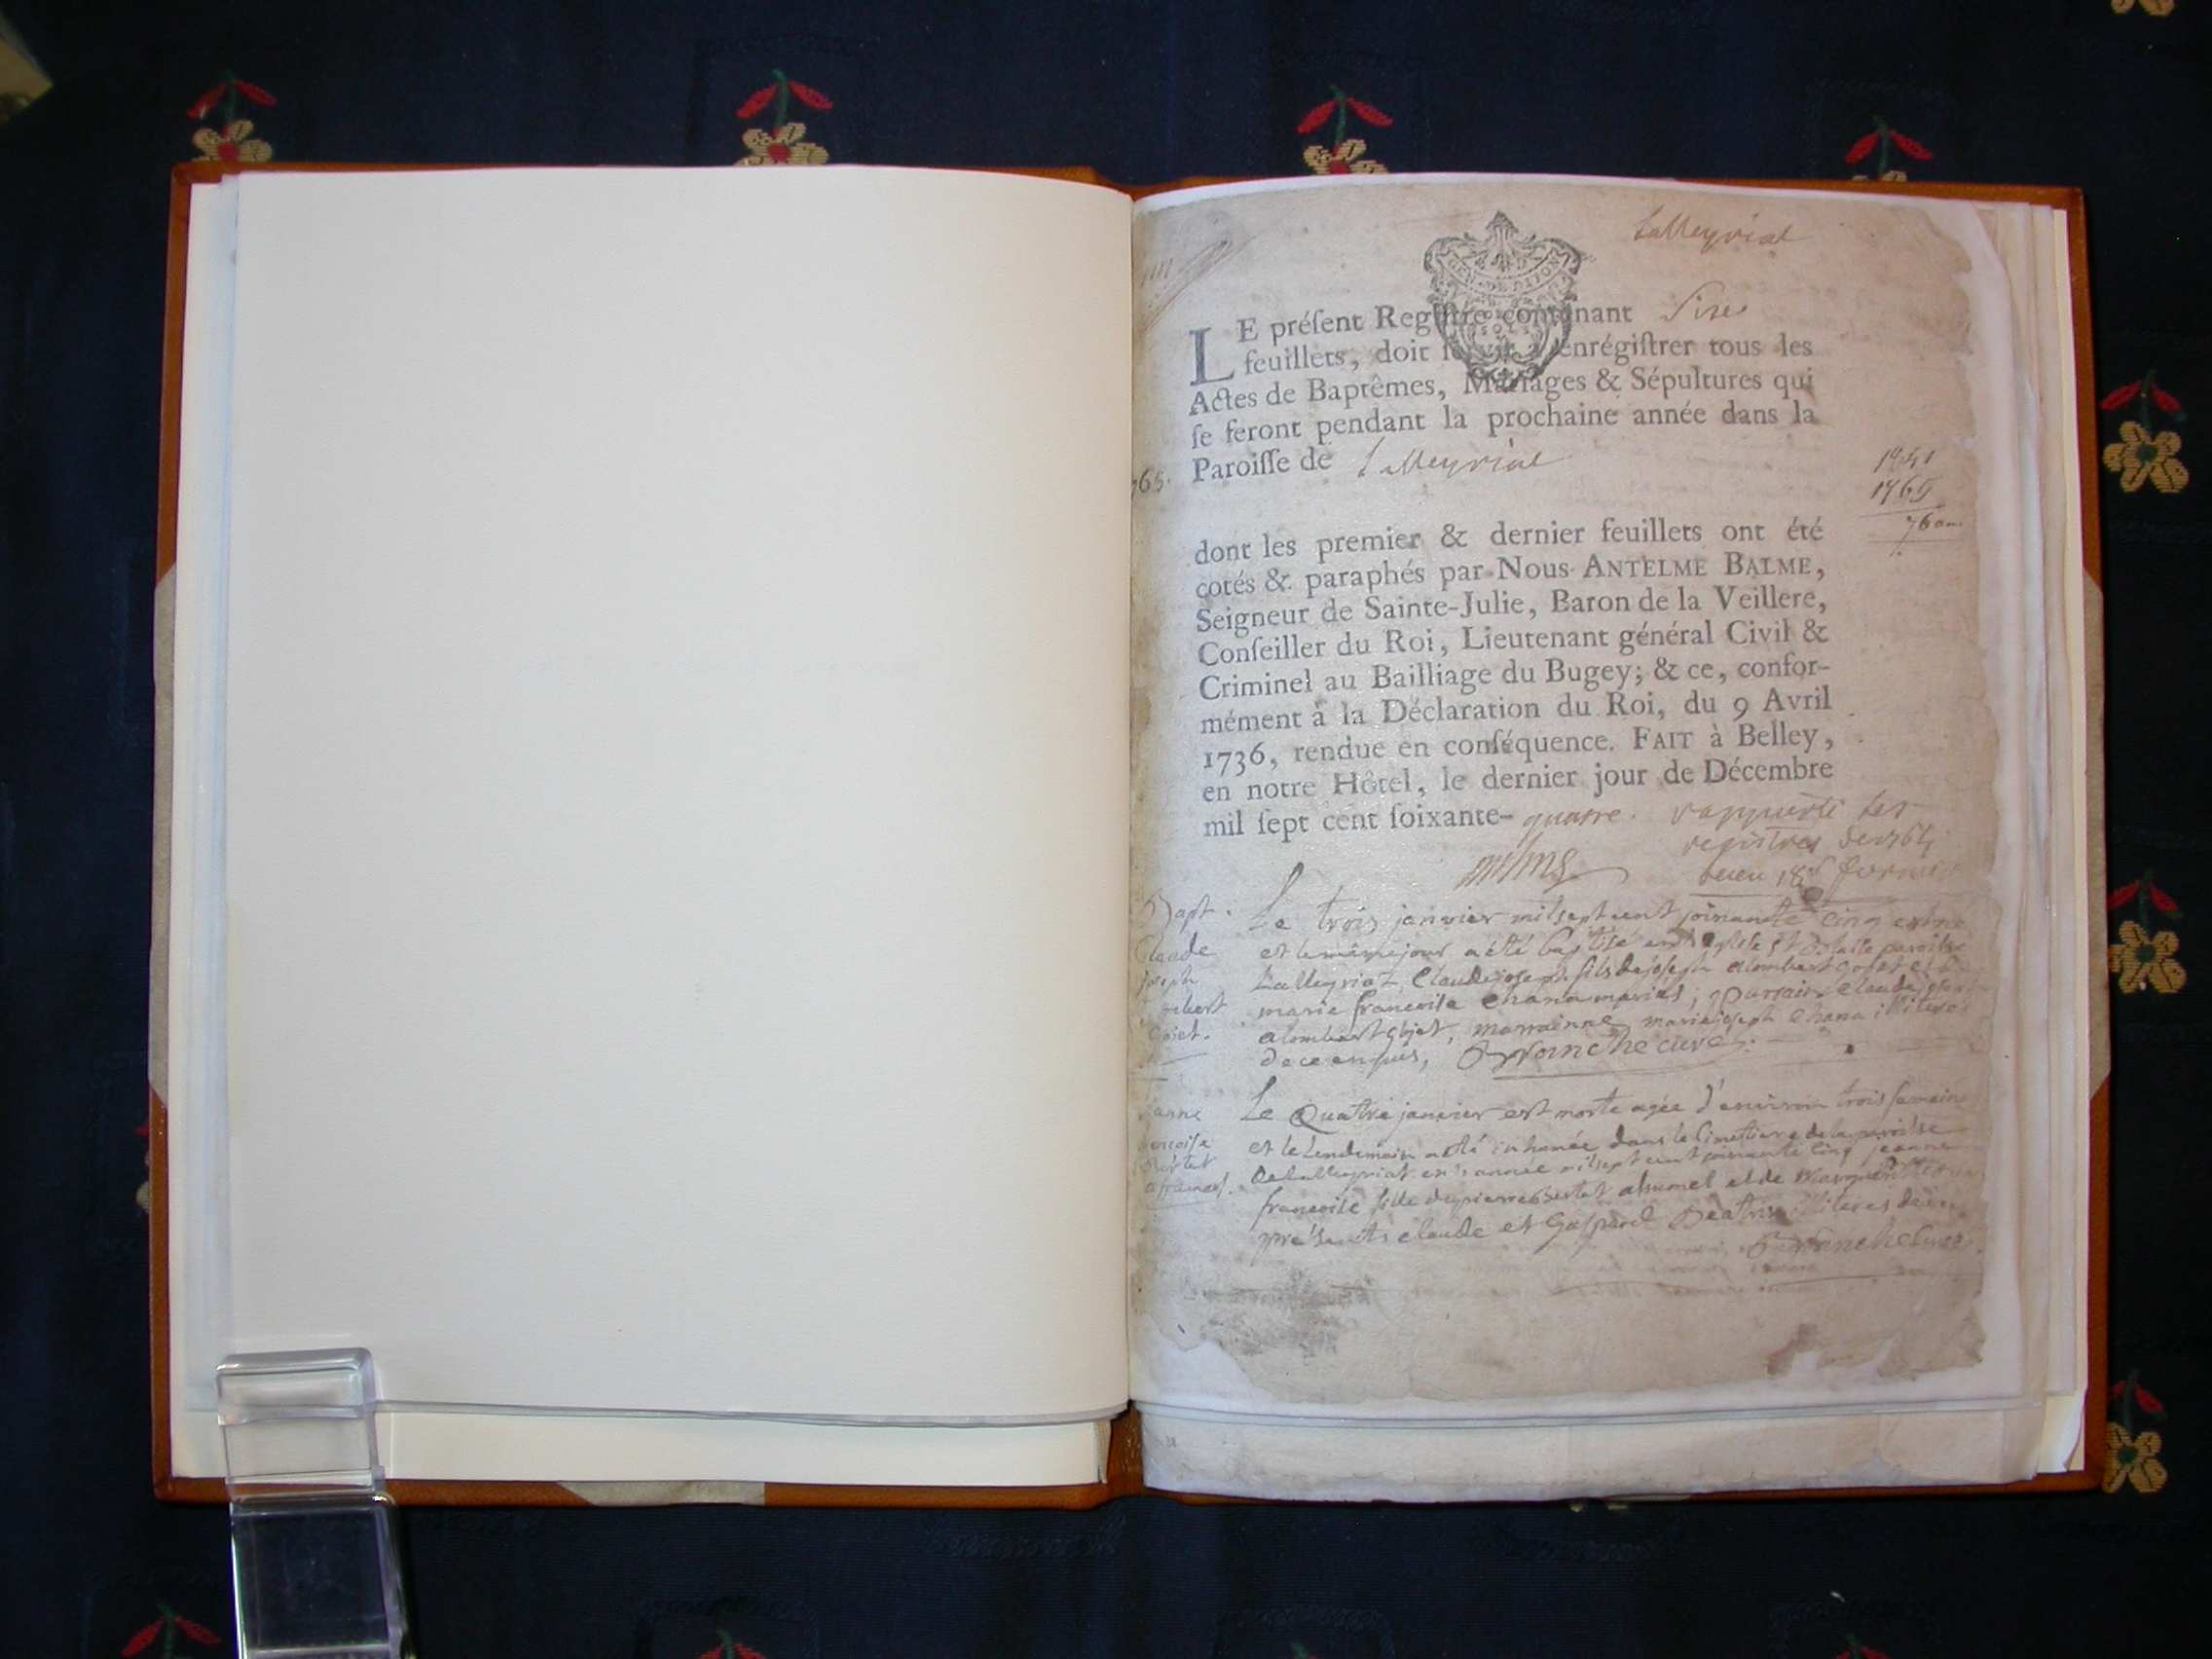 Lalleyriat
GEN. DE DIJON
LE préſent Regiſtre contenant Sixe
feuillets, doit ſervir à enrégiſtrer tous les
Actes de Baptêmes, Mariages & Sépultures qui
ſe feront pendant la prochaine année dans la
765. Paroiſſe de Lalleyriat
1841
1765
76 an.
dont les premier & dernier feuillets ont été
cotés & paraphés par Nous ANTELME BALME,
Seigneur de Sainte-Julie, Baron de la Veillere,
Conſeiller du Roi, Lieutenant général Civil &
Criminel au Bailliage du Bugey; & ce, confor-
mément à la Déclaration du Roi, du 9 Avril
1736, rendue en conſéquence. FAIT à Belley,
en notre Hôtel, le dernier jour de Décembre
mil ſept cent ſoixante-quatre. rapporté les
registres de 1764
Bapt. Le trois janvier mil sept cent soixante cinq est né
Claude et le meme jour a été baptisé en l'eglise paroisse
joseph Lalleyriat Claude joseph fils de joseph alombert gojet et
marie francoise chana mariés; parrain claude joseph
gojet. alombert gojet, marrainne marie joseph chana illiteres
de ce enquis, curé.
Le Quatre janvier est morte agée d'environ trois semaine
et le Lendemain a été inhumée dans le Cimetiere de la paroisse
Bertet de Lalleyriat en l'année mil sept cent soixante cinq jeanne
francoise fille de pierre Bertet et de
présents claude et Gaspard Beatrix illiteres